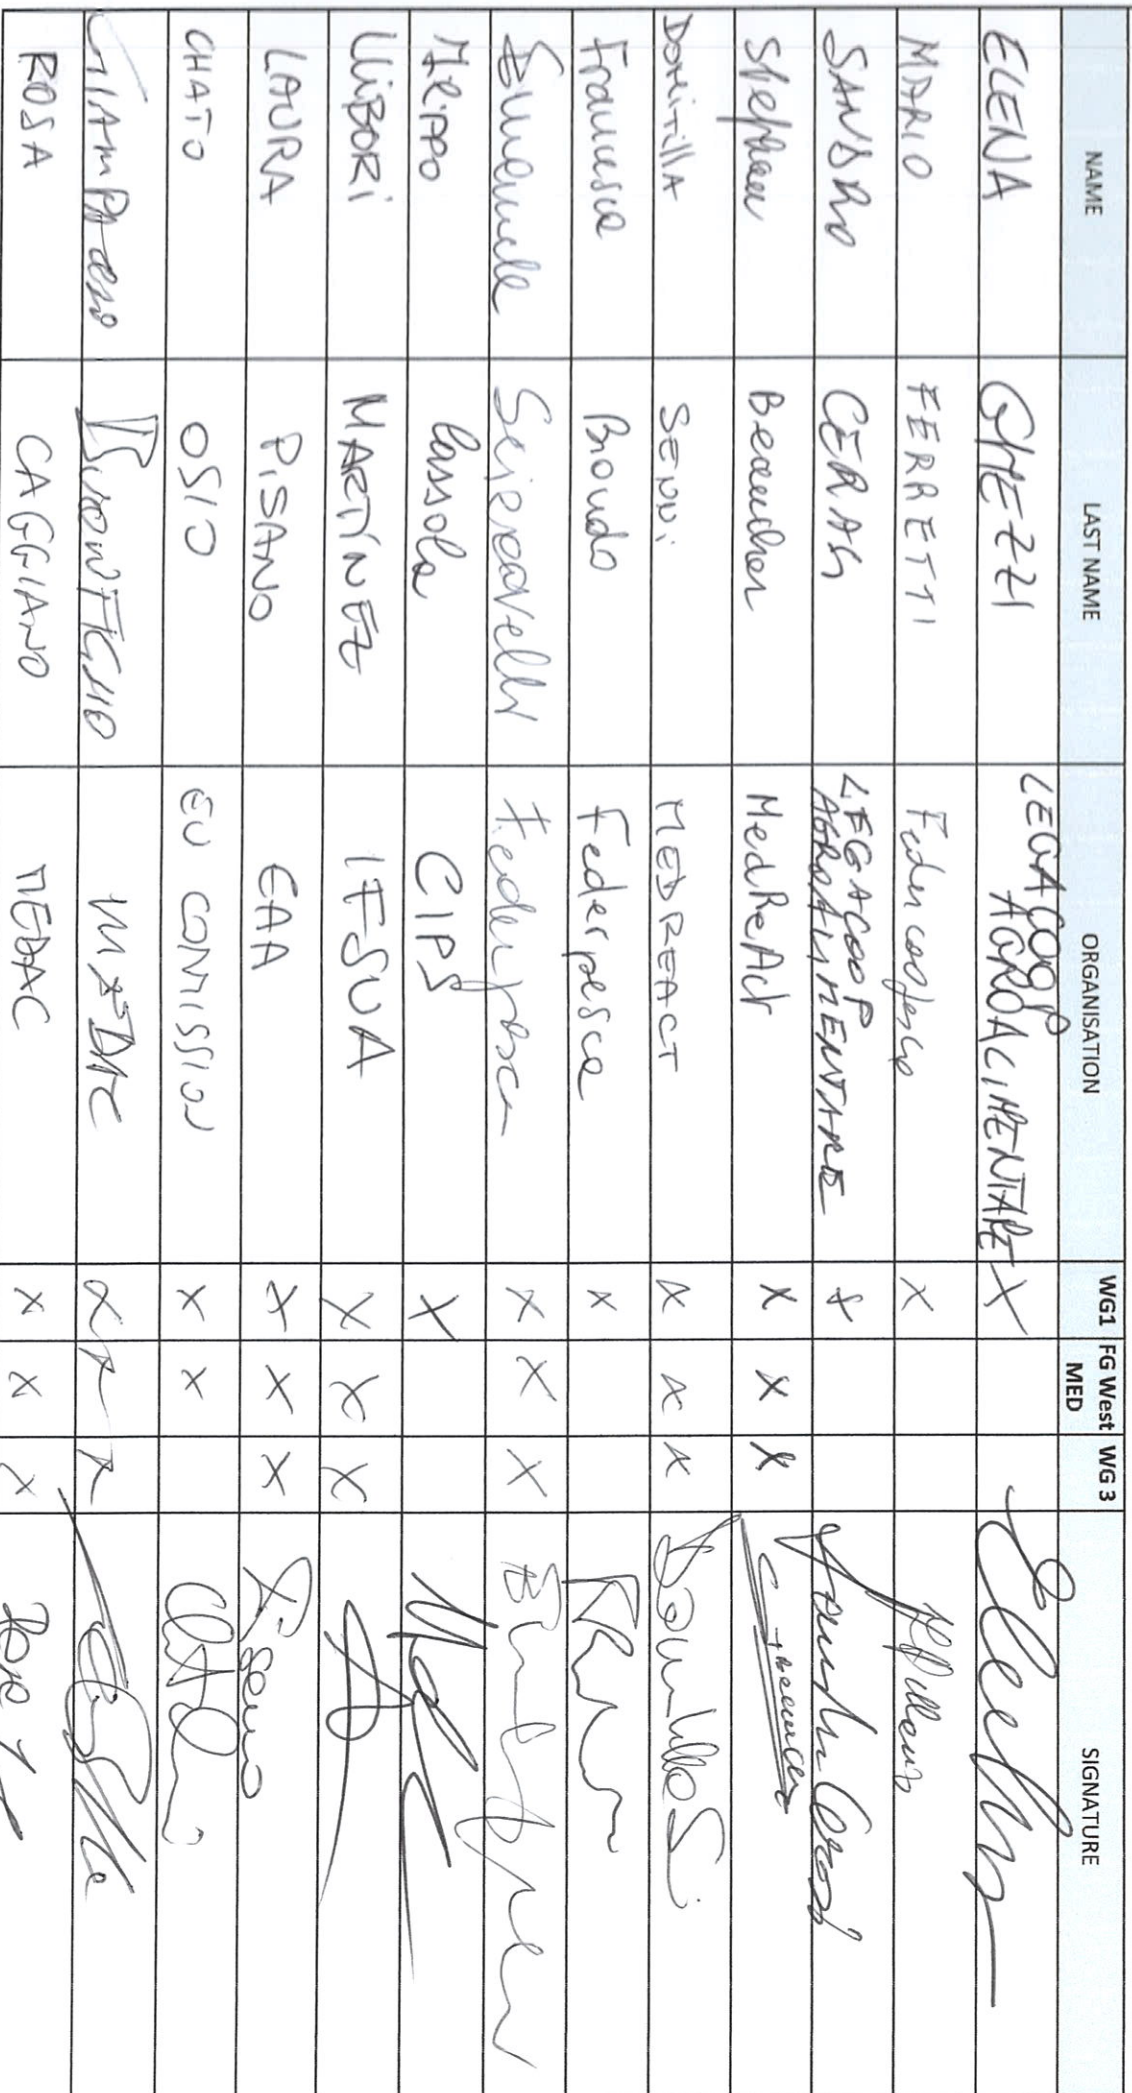 NAME LAST NAME ORGANISATION WG1 FG West MED WG 3 SIGNATURE
ELENA GHEZZI LEGACOOP AGROALIMENTARE X
MARIO FERRETTI Federcoopesca X
SANDRO CERAS LEGACOOP AGROALIMENTARE X
Stephan Beaucher MedReAct X X X
DOMITILLA SENNI MEDREACT X X X
Francesca Biondo Federpesca X
Emanuele Sciacovelli Federpesca X X X
Cassola CIPS X
LLIBORI MARTÍNEZ IFSUA X X X
LAURA PISANO EAA X X X
CHATO OSIO EU COMISSION X X
GIAMPAOLO BUONFIGLIO MEDAC X X X
ROSA CAGGIANO MEDAC X X X